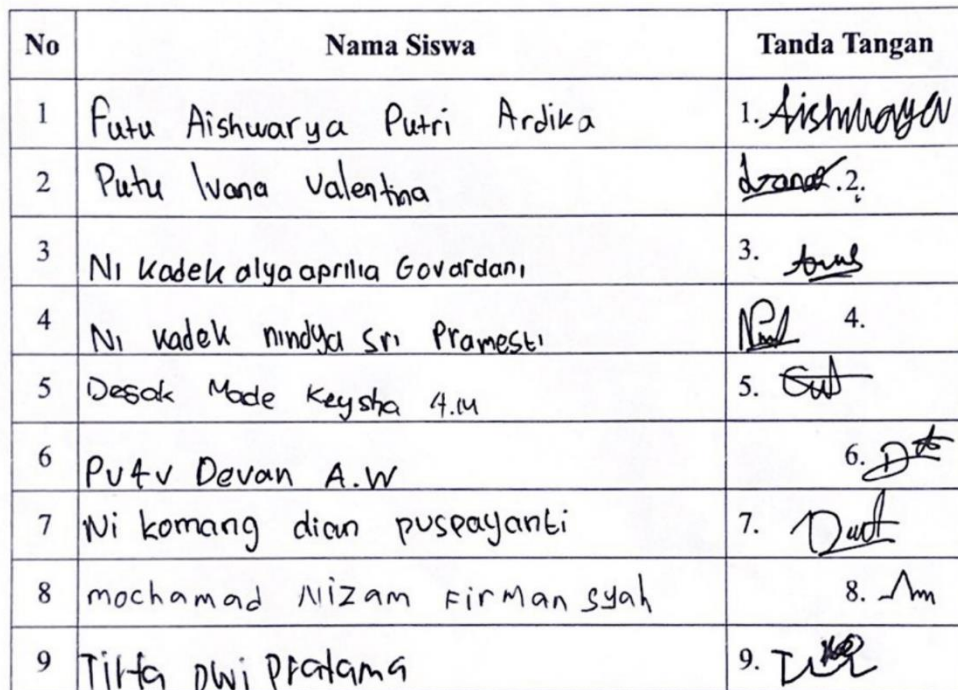 No Nama Siswa Tanda Tangan
1 Putu Aishwarya Putri Ardika 1. Aishwarya
2 Putu Ivana Valentina Ivana 2.
3 Ni Kadek alya aprilia Govardani 3.
4 Ni Kadek nindya Sri Pramesti 4.
5 Desak Made Keysha 5.
6 Putu Devan A.W 6.
7 Ni komang dian puspayanti 7.
8 mochamad Nizam Firman syah 8.
9 Tirta Dwi Pratama 9.